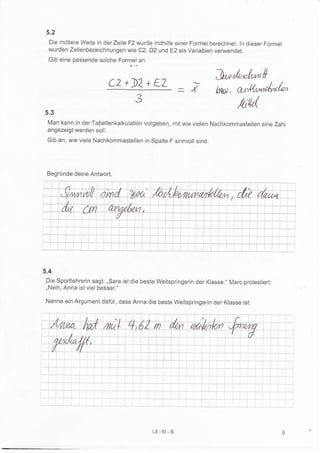 5.2
Die mittlere Weite in der Zelle F2 wurde mithilfe einer Formel berechnet. In dieser Formel
wurden Zellenbezeichnungen wie C2, D2 und E2 als Variablen verwendet.
Gib eine passende solche Formel an.
C2 + D2 + E2
3
= x̄
Durchschnitt
bzw. arithmetisches
Mittel
5.3
Man kann in der Tabellenkalkulation vorgeben, mit wie vielen Nachkommastellen eine Zahl
angezeigt werden soll.
Gib an, wie viele Nachkommastellen in Spalte F sinnvoll sind.
Begründe deine Antwort.
Sinnvoll sind zwei Nachkommastellen, die dann
die cm angeben.
5.4
Die Sportlehrerin sagt: „Sara ist die beste Weitspringerin der Klasse.“ Marc protestiert:
„Nein, Anna ist viel besser.“
Nenne ein Argument dafür, dass Anna die beste Weitspringerin der Klasse ist.
Anna hat mit 4,62 m den weitesten Sprung
geschafft.
LS - M - B
9